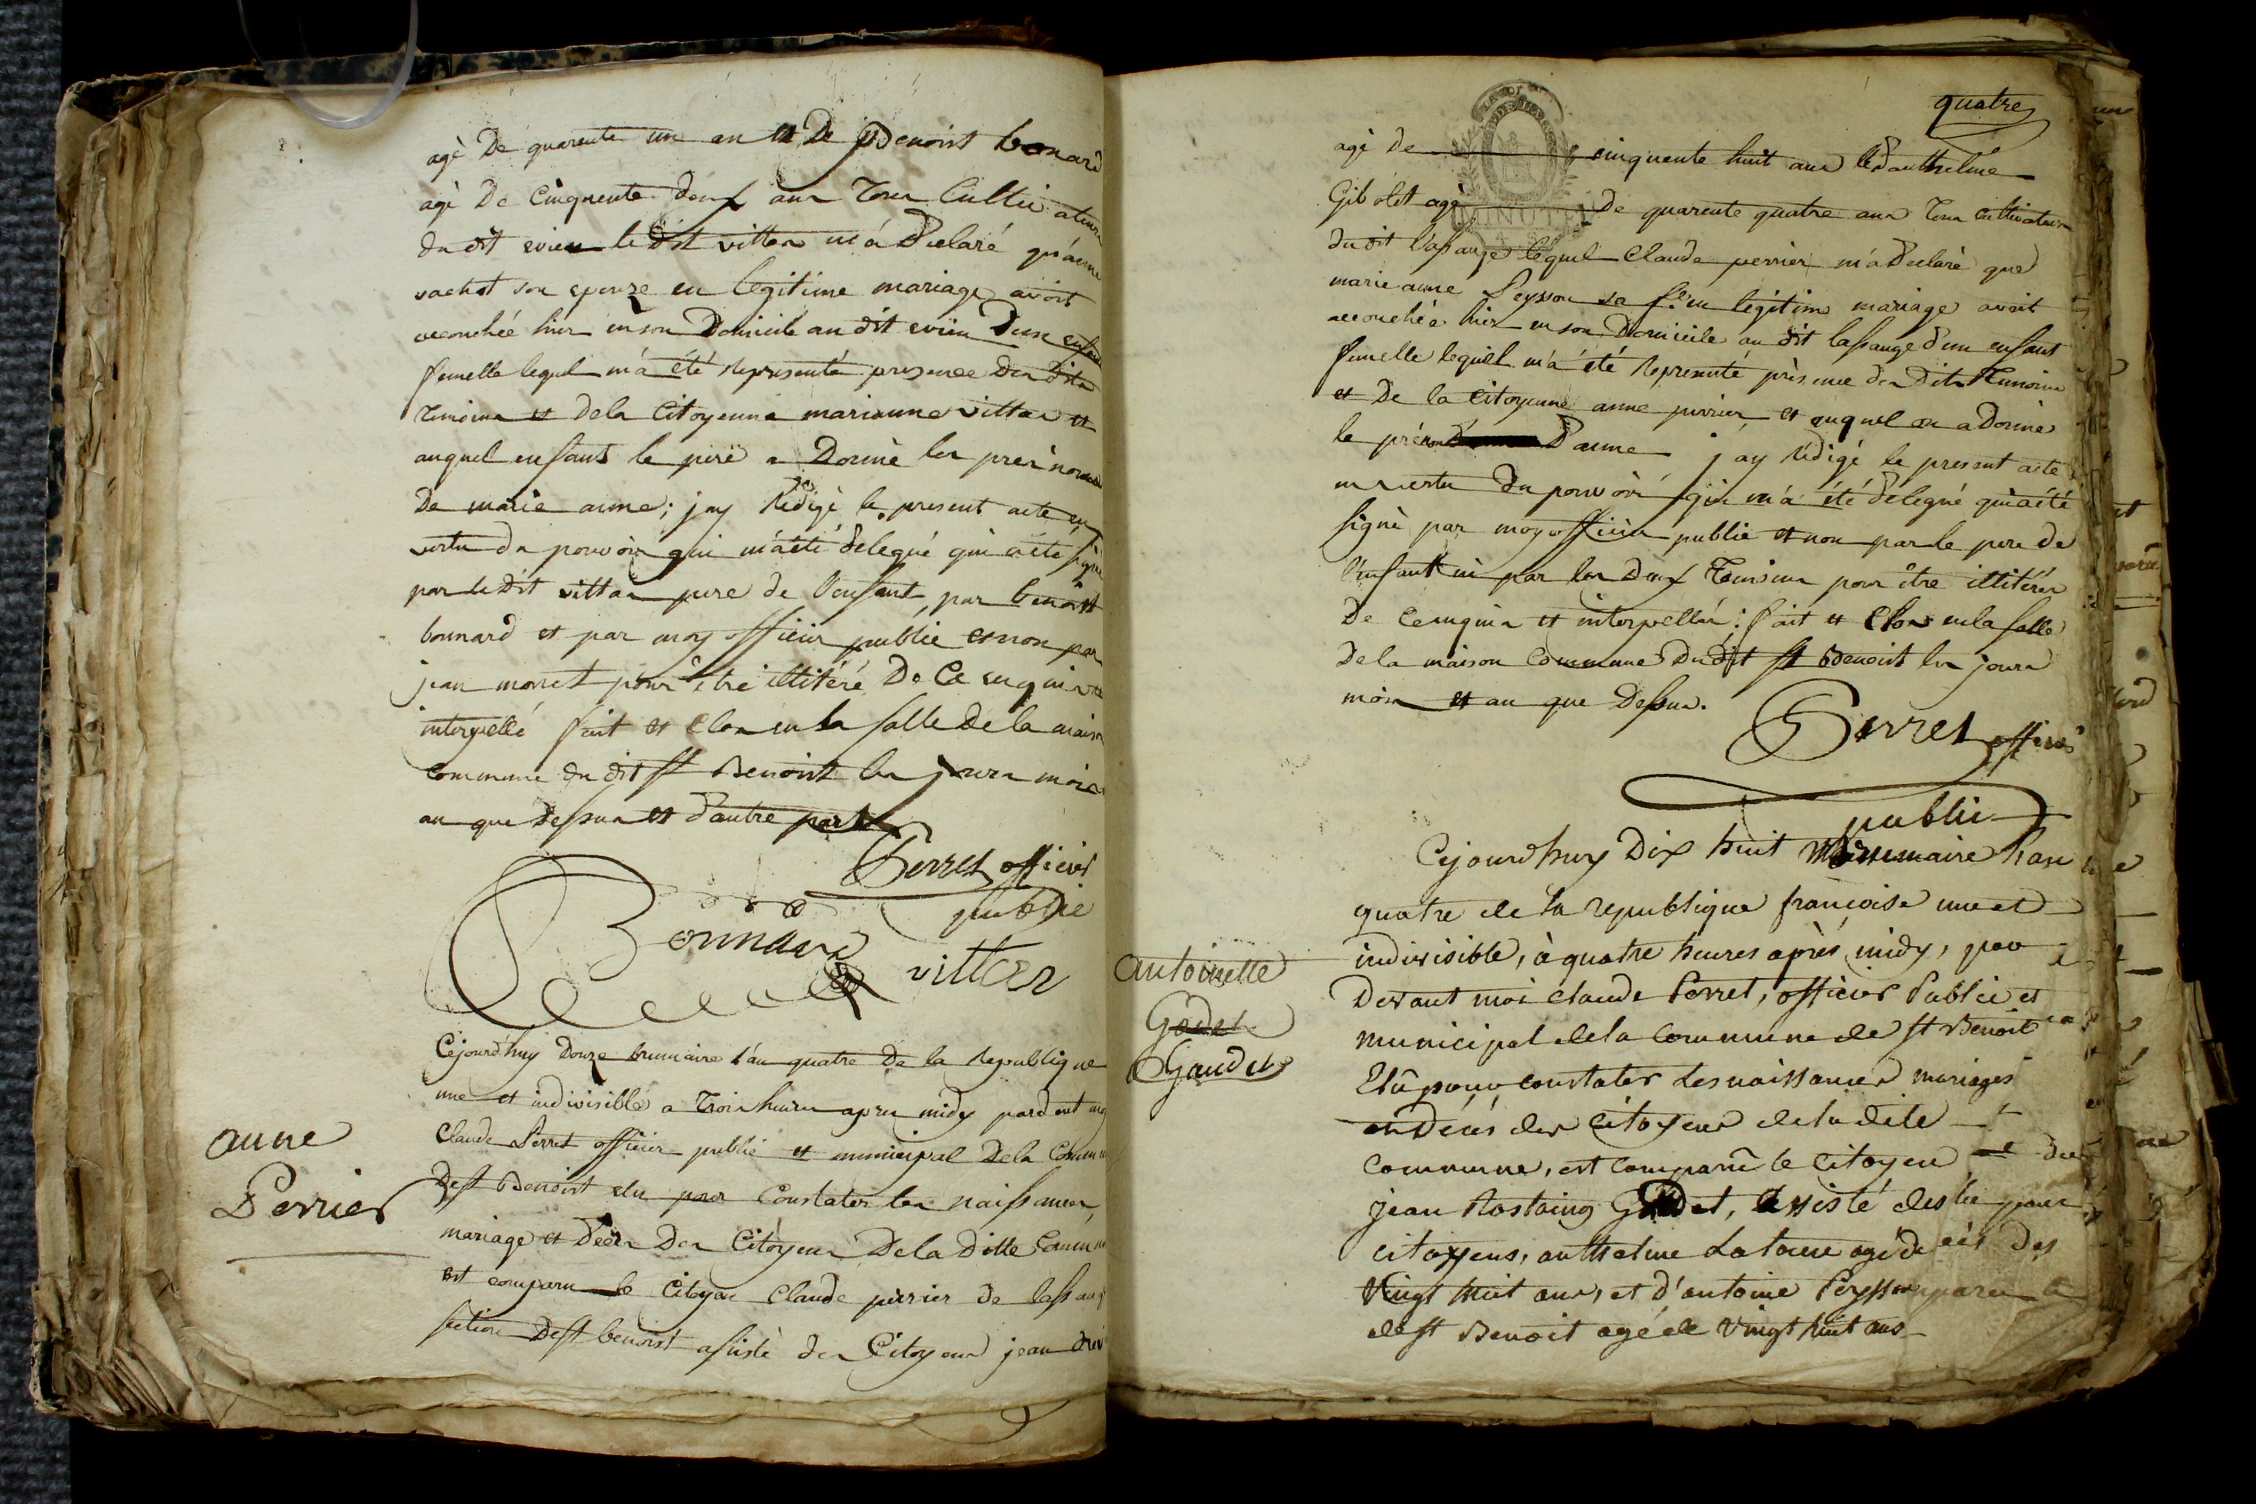 agé De quarente un an et De Benoist bonard
agé De Cinquente deux ans Tous Cultivateurs
du dit evieu le dit vittoz m'a Déclaré qu'anne
vachot son epouze en legitime mariage avoit
accouchée hier en son Domicile au dit evieu D'un enfant
femelle lequel m'a été représenté présence des dits
Temoins et de la Citoyenne marianne vittoz et
auquel enfant le père a Donné les prénoms
De marie anne; j'ay Rédigé le present acte en
vertu du pouvoir qui m'a été délégué qui a été signé
par le dit vittoz pere de l'enfant, par benoist
bonnard et par moy officier public et non par
jean monet pour être illitéré De Ce enquis et
interpellé fait et Clos en la salle de la maison
commune du dit st Benoist les jours mois
an que dessus et d'autre part
Perret officier
public
Bonnard
vittoz
anne
Perrier
Cejourd'huy Douze brumaire l'an quatre De la Republique
une et indivisible a Trois heures apres midy pardevant moy
Claude Perret officier public et municipal De la Commune
De st Benoist elu pour Constater les naissances,
mariage et Décès Des Citoyens De la Ditte Commune
est comparu le Citoyen Claude perrier de lassange
section De st benoist assisté des Citoyens jean
quatre
agé de cinquente huit ans et d'anthelme
Gibolet agé De quarente quatre ans Tous Cultivateurs
du dit lassange lequel Claude perrier m'a Déclaré que
marie anne Peysson sa fe en légitime mariage avoit
accouchée hier en son Domicile au dit lassange d'un enfant
femelle lequel m'a été Représenté présence des Dits Temoins
et De la Citoyenne anne perrier et auquel on a Donné
le prénom D'anne j'ay rédigé le present acte
en vertu du pouvoir qui m'a été délégué qui a été
signé par moy officier public et non par le pere de
l'enfant ni par les deux Temoins pour être illitérés
De Ce enquis et interpellés: fait et Clos en la salle
De la maison Commune Du dit st Benoist les jours
mois et an que Dessus.
Perret officier
public
antoinette
Godet
Gaudet
Cejourd'huy Dix huit Brumaire l'an
quatre de la republique françoise une et
indivisible, à quatre heures après midy, par
Devant moi Claude Perret, officier Public et
municipal de la Commune de st Benoit
Elû pour constater les naissances mariages
et Décès des Citoyens de la dite
Commune, est comparû le Citoyen
jean Rostaing Godet, assisté des
citoyens, anthelme Latome agé de
vingt huit ans, et d'antoine Peysson
de st Benoit agé de vingt huit ans